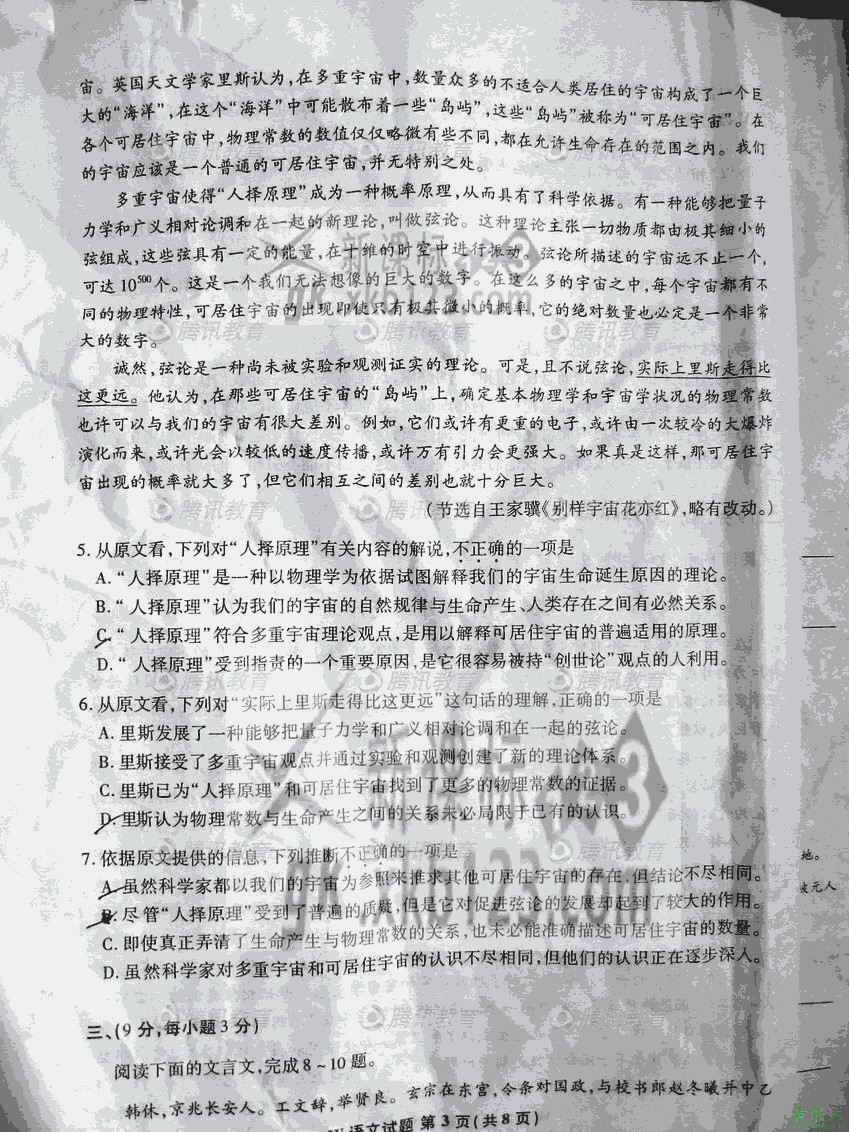 宙。英国天文学家里斯认为,在多重宇宙中,数量众多的不适合人类居住的宇宙构成了一个巨
大的“海洋”,在这个“海洋”中可能散布着一些“岛屿”,这些“岛屿”被称为“可居住宇宙”。在
各个可居住宇宙中,物理常数的数值仅仅略微有些不同,都在允许生命存在的范围之内。我们
的宇宙应该是一个普通的可居住宇宙,并无特别之处。
多重宇宙使得“人择原理”成为一种概率原理,从而具有了科学依据。有一种能够把量子
力学和广义相对论调和在一起的新理论,叫做弦论。这种理论主张一切物质都由极其细小的
弦组成,这些弦具有一定的能量,在十维的时空中进行振动。弦论所描述的宇宙远不止一个,
可达10⁵⁰⁰个。这是一个我们无法想像的巨大的数字。在这么多的宇宙之中,每个宇宙都有不
同的物理特性,可居住宇宙的出现即使只有极其微小的概率,它的绝对数量也必定是一个非常
大的数字。
诚然,弦论是一种尚未被实验和观测证实的理论。可是,且不说弦论,实际上里斯走得比
这更远。他认为,在那些可居住宇宙的“岛屿”上,确定基本物理学和宇宙学状况的物理常数
也许可以与我们的宇宙有很大差别。例如,它们或许有更重的电子,或许由一次较冷的大爆炸
演化而来,或许光会以较低的速度传播,或许万有引力会更强大。如果真是这样,那可居住宇
宙出现的概率就大多了,但它们相互之间的差别也就十分巨大。
(节选自王家骥《别样宇宙花亦红》,略有改动。)
5. 从原文看,下列对“人择原理”有关内容的解说,不正确的一项是
A. “人择原理”是一种以物理学为依据试图解释我们的宇宙生命诞生原因的理论。
B. “人择原理”认为我们的宇宙的自然规律与生命产生、人类存在之间有必然关系。
C. “人择原理”符合多重宇宙理论观点,是用以解释可居住宇宙的普遍适用的原理。
D. “人择原理”受到指责的一个重要原因,是它很容易被持“创世论”观点的人利用。
6. 从原文看,下列对“实际上里斯走得比这更远”这句话的理解,正确的一项是
A. 里斯发展了一种能够把量子力学和广义相对论调和在一起的弦论。
B. 里斯接受了多重宇宙观点并通过实验和观测创建了新的理论体系。
C. 里斯已为“人择原理”和可居住宇宙找到了更多的物理常数的证据。
D. 里斯认为物理常数与生命产生之间的关系未必局限于已有的认识。
7. 依据原文提供的信息,下列推断不正确的一项是
A. 虽然科学家都以我们的宇宙为参照来推求其他可居住宇宙的存在,但结论不尽相同。
B. 尽管“人择原理”受到了普遍的质疑,但是它对促进弦论的发展却起到了较大的作用。
C. 即使真正弄清了生命产生与物理常数的关系,也未必能准确描述可居住宇宙的数量。
D. 虽然科学家对多重宇宙和可居住宇宙的认识不尽相同,但他们的认识正在逐步深入。
三、(9分,每小题3分)
阅读下面的文言文,完成8~10题。
韩休,京兆长安人。工文辞,举贤良。玄宗在东宫,令条对国政,与校书郎赵冬曦并中乙
语文试题 第3页(共8页)
地。
元人
新课标
gkao123.com
3
腾讯教育